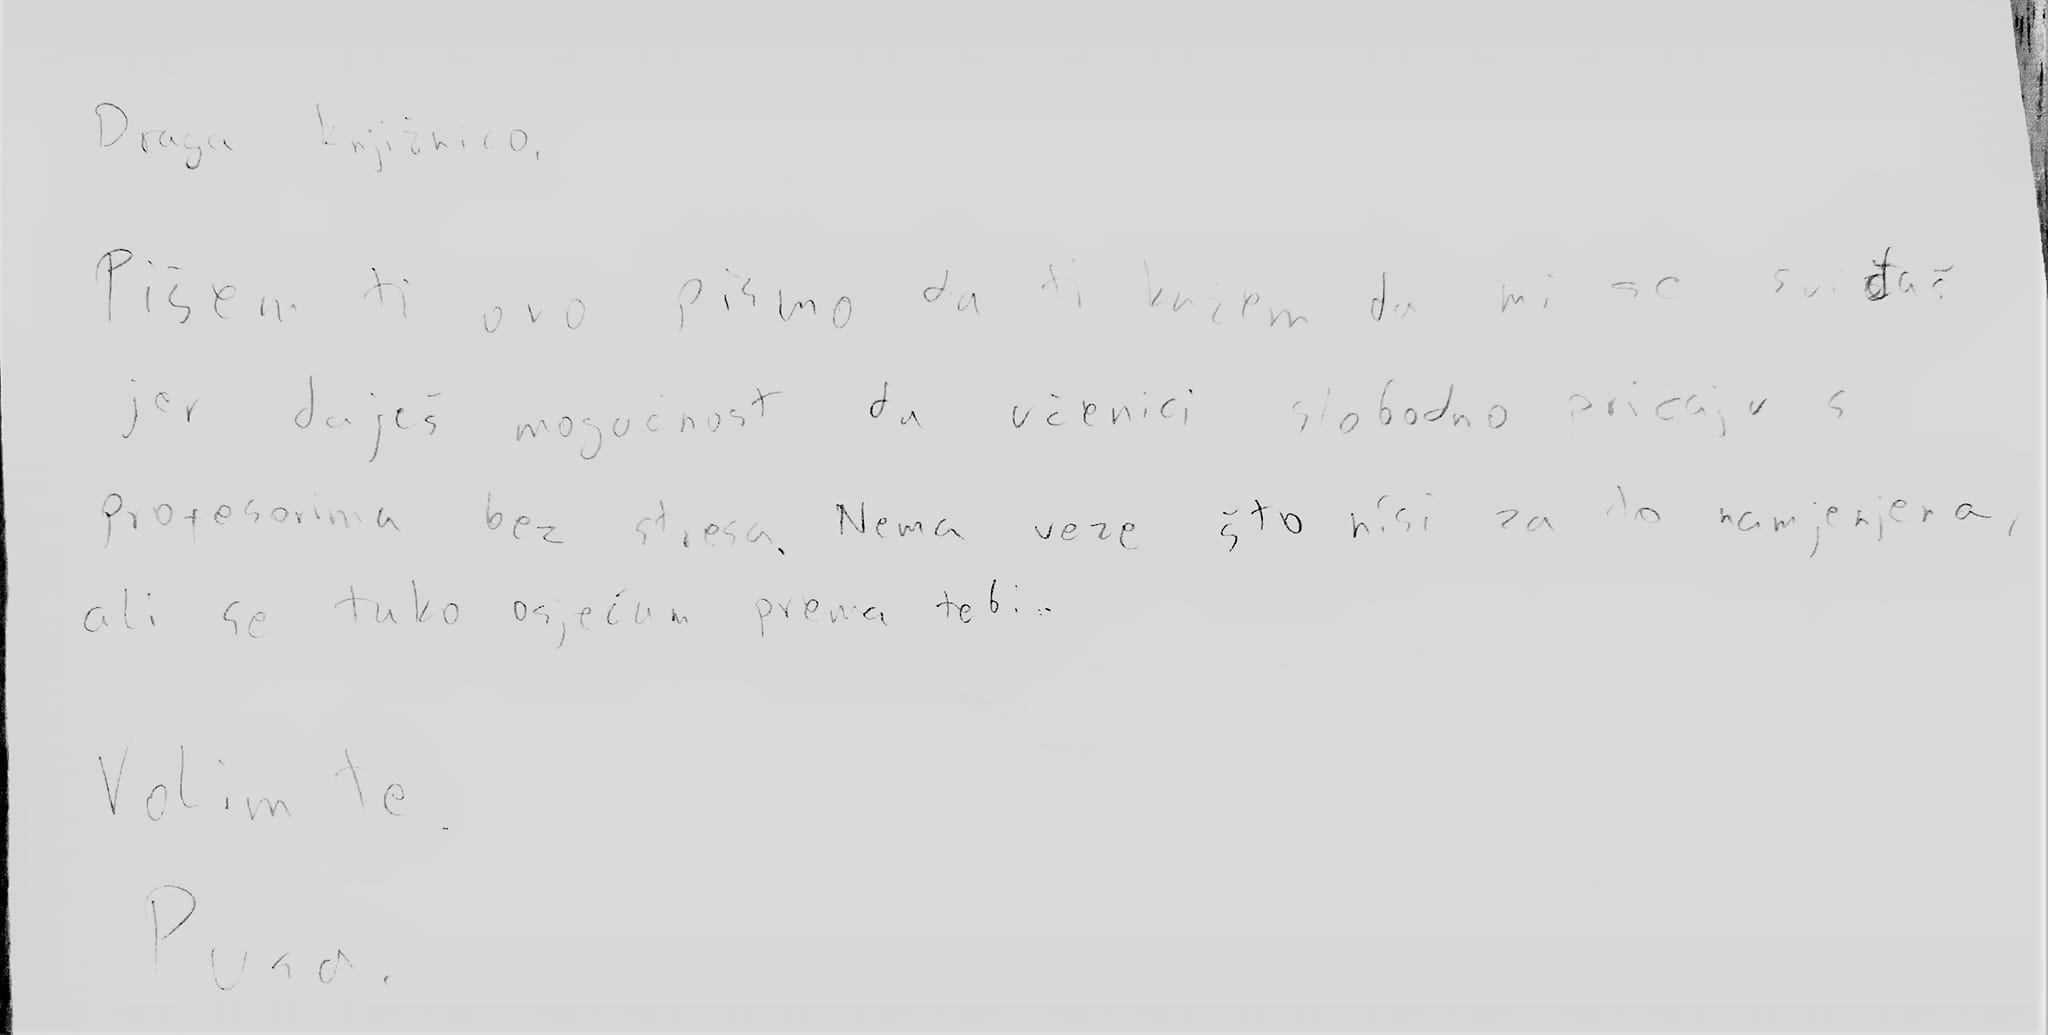 Draga knjižnico,
Pišem ti ovo pismo da ti kažem da mi se sviđaš
jer daješ mogućnost da učenici slobodno pričaju s
profesorima bez stresa. Nema veze što nisi za to namjenjena,
ali se tako osjećam prema tebi..
Volim te.
Pusa.